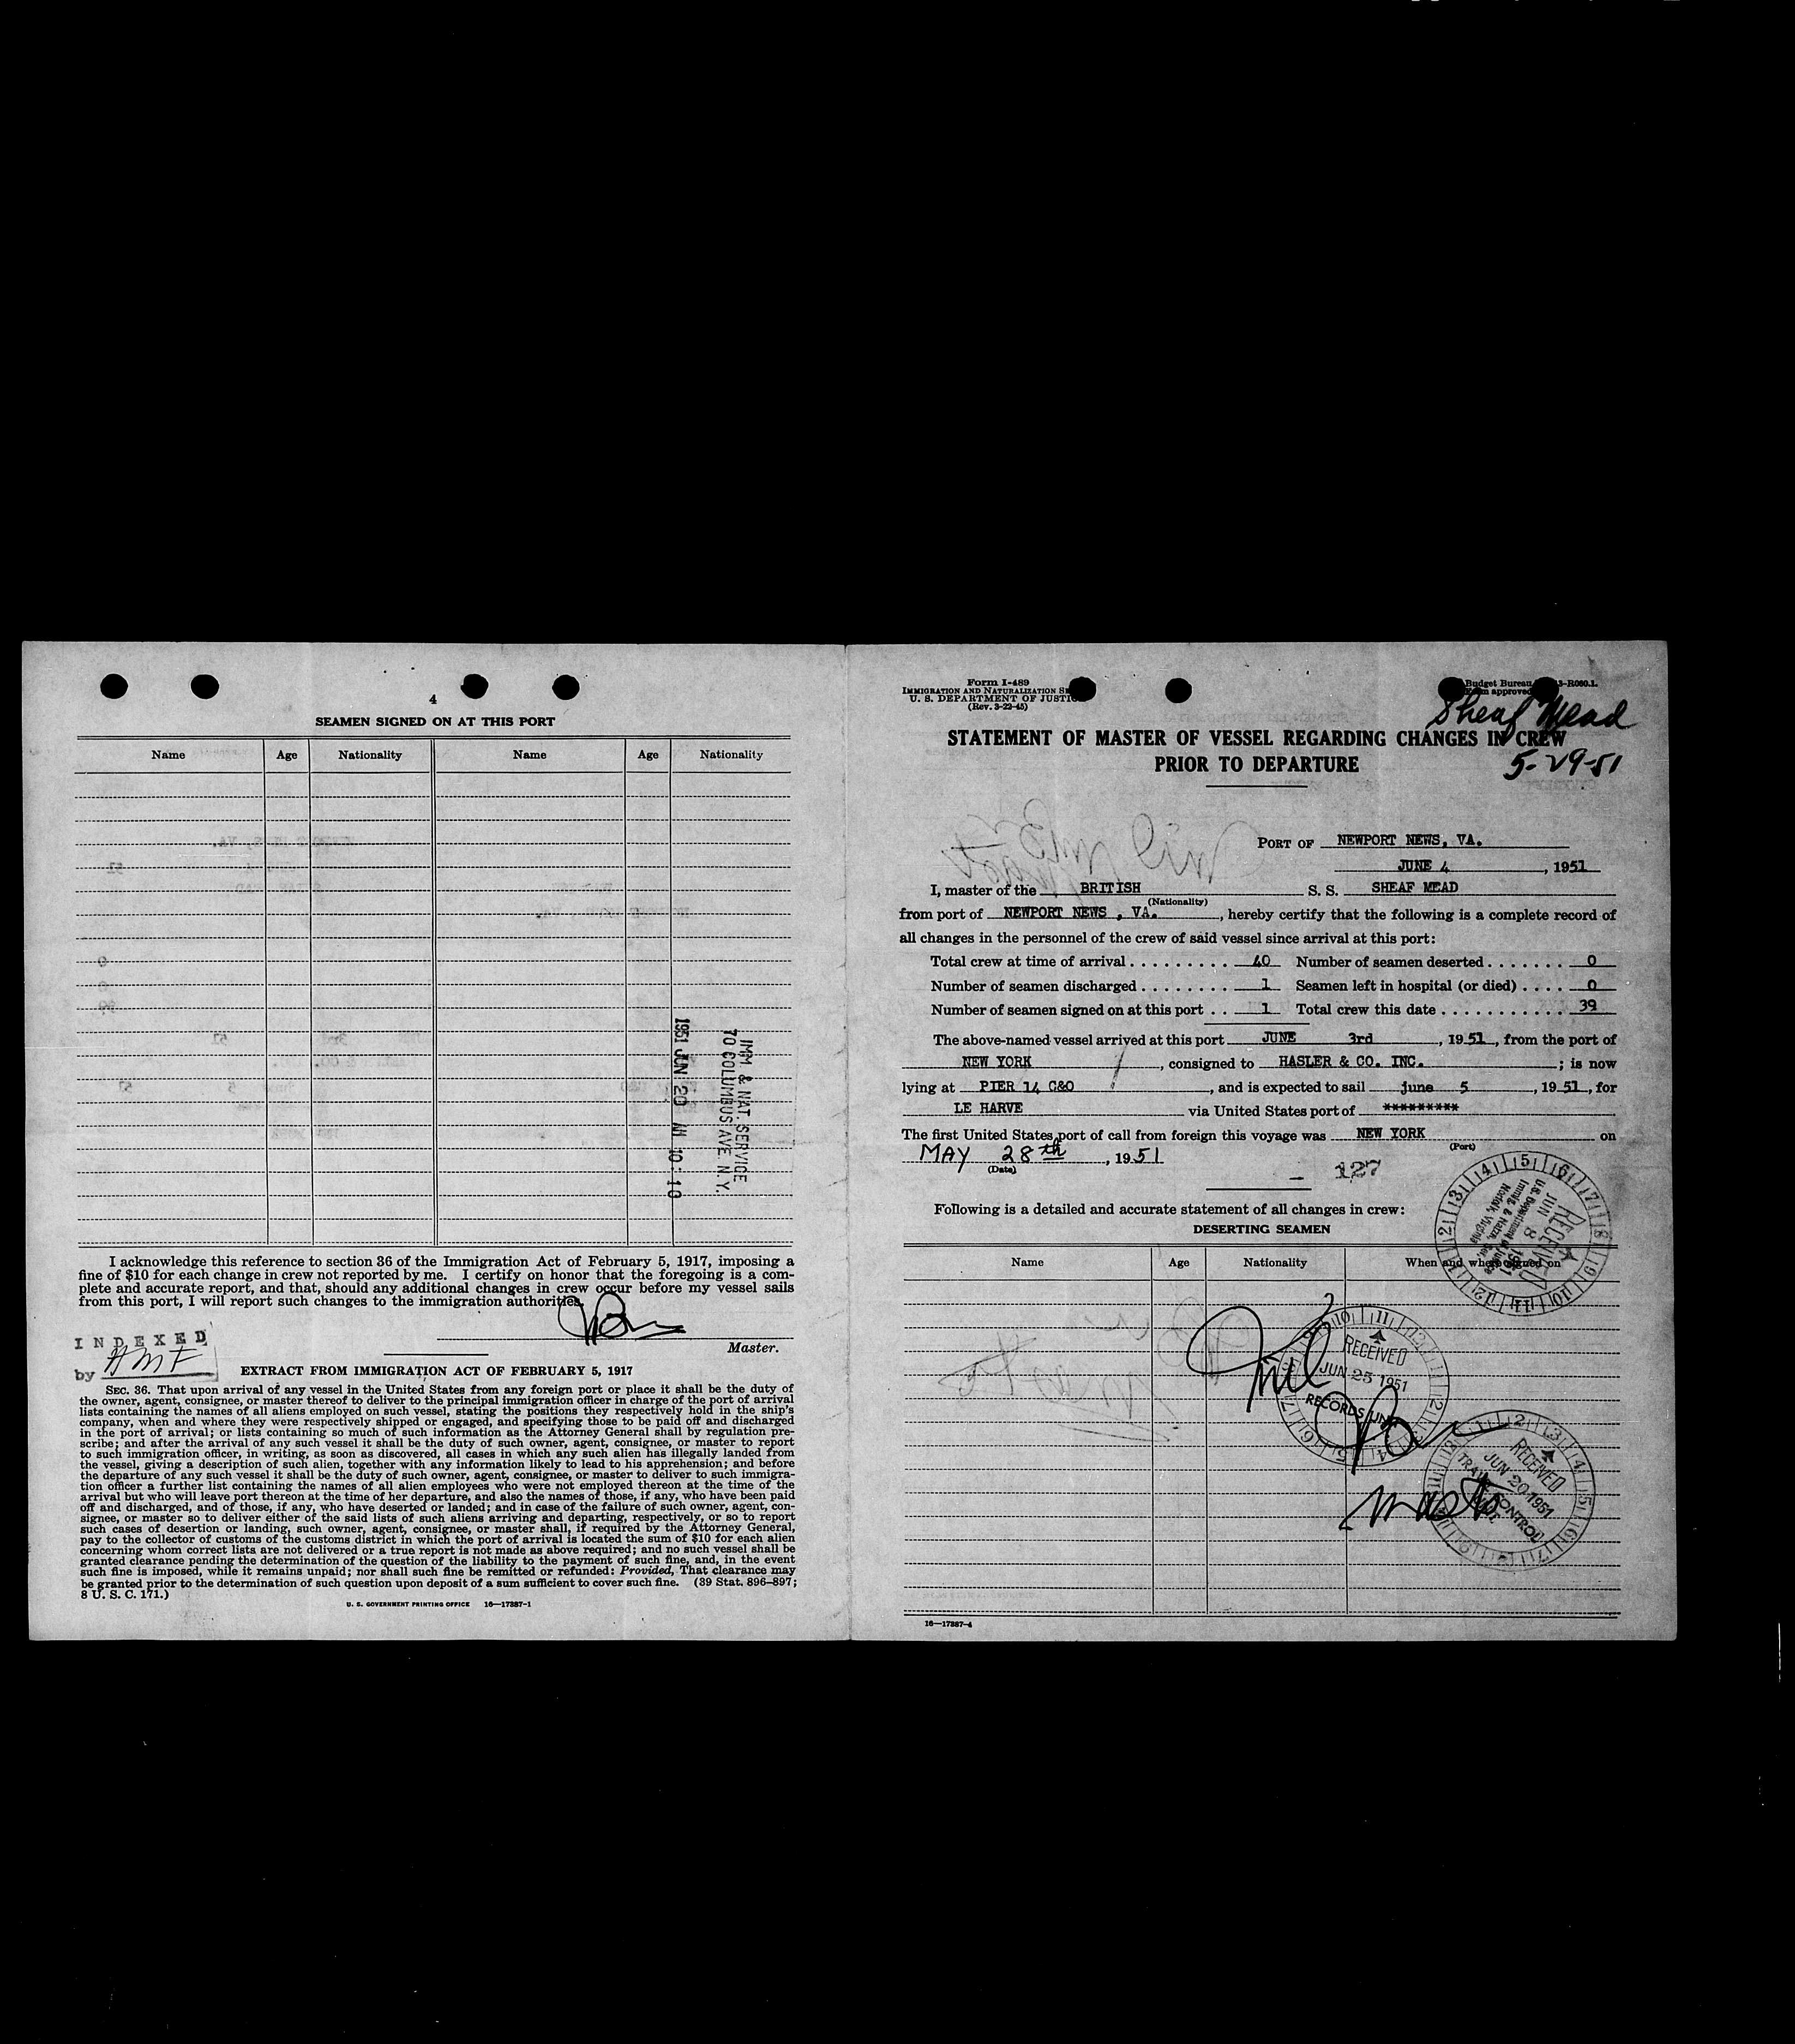 4
SEAMEN SIGNED ON AT THIS PORT
Name Age Nationality Name Age Nationality
IMM & NAT. SERVICE
70 COLUMBUS AVE. N. Y.
1951 JUN 20 AM 10:10
I acknowledge this reference to section 36 of the Immigration Act of February 5, 1917, imposing a
fine of $10 for each change in crew not reported by me. I certify on honor that the foregoing is a com-
plete and accurate report, and that, should any additional changes in crew occur before my vessel sails
from this port, I will report such changes to the immigration authorities.
Master.
INDEXED
by HMF
EXTRACT FROM IMMIGRATION ACT OF FEBRUARY 5, 1917
SEC. 36. That upon arrival of any vessel in the United States from any foreign port or place it shall be the duty of
the owner, agent, consignee, or master thereof to deliver to the principal immigration officer in charge of the port of arrival
lists containing the names of all aliens employed on such vessel, stating the positions they respectively hold in the ship's
company, when and where they were respectively shipped or engaged, and specifying those to be paid off and discharged
in the port of arrival; or lists containing so much of such information as the Attorney General shall by regulation pre-
scribe; and after the arrival of any such vessel it shall be the duty of such owner, agent, consignee, or master to report
to such immigration officer, in writing, as soon as discovered, all cases in which any such alien has illegally landed from
the vessel, giving a description of such alien, together with any information likely to lead to his apprehension; and before
the departure of any such vessel it shall be the duty of such owner, agent, consignee, or master to deliver to such immigra-
tion officer a further list containing the names of all alien employees who were not employed thereon at the time of the
arrival but who will leave port thereon at the time of her departure, and also the names of those, if any, who have been paid
off and discharged, and of those, if any, who have deserted or landed; and in case of the failure of such owner, agent, con-
signee, or master so to deliver either of the said lists of such aliens arriving and departing, respectively, or so to report
such cases of desertion or landing, such owner, agent, consignee, or master shall, if required by the Attorney General,
pay to the collector of customs of the customs district in which the port of arrival is located the sum of $10 for each alien
concerning whom correct lists are not delivered or a true report is not made as above required; and no such vessel shall be
granted clearance pending the determination of the question of the liability to the payment of such fine, and, in the event
such fine is imposed, while it remains unpaid; nor shall such fine be remitted or refunded: Provided, That clearance may
be granted prior to the determination of such question upon deposit of a sum sufficient to cover such fine. (39 Stat. 896–897;
8 U. S. C. 171.)
U. S. GOVERNMENT PRINTING OFFICE 16—17387-1
Form I-489
IMMIGRATION AND NATURALIZATION
U. S. DEPARTMENT OF JUSTICE
(Rev. 3-22-45)
Budget Bureau 3-R060.1.
approved
Sheaf Mead
STATEMENT OF MASTER OF VESSEL REGARDING CHANGES IN CREW
PRIOR TO DEPARTURE
5-29-51
PORT OF NEWPORT NEWS, VA.
JUNE 4, 1951
I, master of the BRITISH S. S. SHEAF MEAD
(Nationality)
from port of NEWPORT NEWS , VA., hereby certify that the following is a complete record of
all changes in the personnel of the crew of said vessel since arrival at this port:
Total crew at time of arrival . . . . . . . . . . 40 Number of seamen deserted . . . . . . . 0
Number of seamen discharged . . . . . . . . 1 Seamen left in hospital (or died) . . . . 0
Number of seamen signed on at this port . . 1 Total crew this date . . . . . . . . . . . 39
The above-named vessel arrived at this port JUNE 3rd, 1951, from the port of
NEW YORK, consigned to HASLER & CO. INC.; is now
lying at PIER 14 C&O, and is expected to sail june 5, 1951, for
LE HARVE via United States port of *********
The first United States port of call from foreign this voyage was NEW YORK on
(Port)
MAY 28th, 1951
(Date)
127
Following is a detailed and accurate statement of all changes in crew:
DESERTING SEAMEN
Name Age Nationality When and where signed on
RECEIVED
JUN 8 1951
U.S. Department of Justice
Immig. & Natz. Ser.
Norfolk, Virginia
Nil
RECEIVED
JUN 25 1951
RECORDS UNIT
RECEIVED
JUN 20 1951
CONTROL
Master
16—17387-4